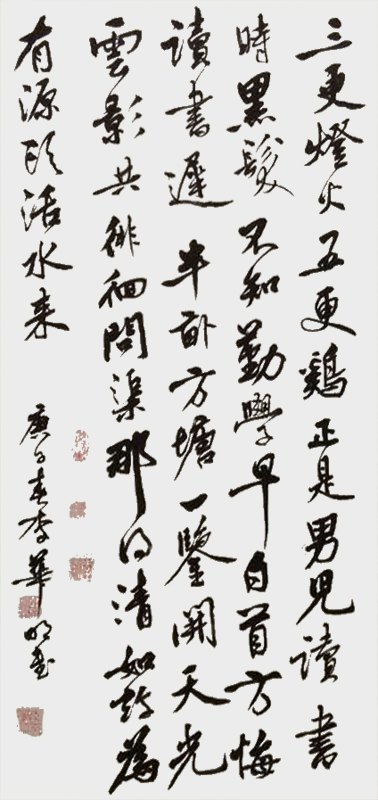 三更燈火五更鷄正是男兒讀書
時黑髮不知勤學早白首方悔
讀書遲半畝方塘一鑒開天光
雲影共徘徊問渠那得清如許為
有源頭活水来
庚子春李華明書